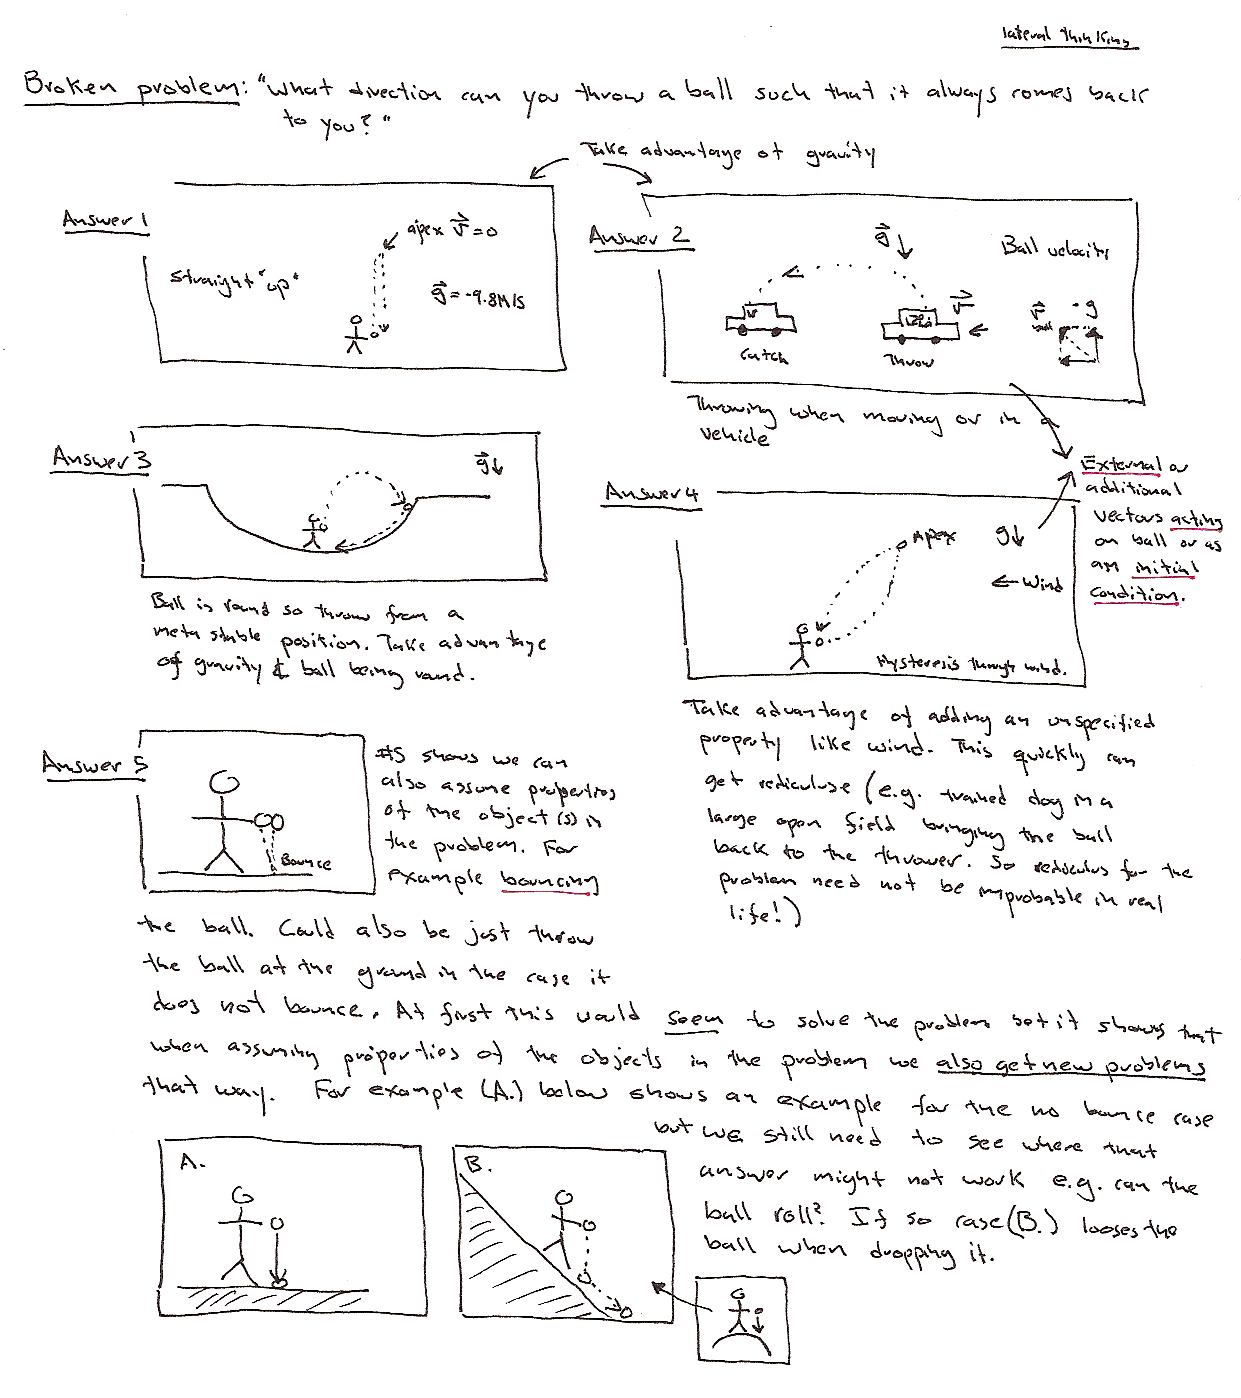 lateral thinking
Broken problem: "What direction can you throw a ball such that it always comes back
to you?"
Take advantage of gravity
Answer 1
apex v=0
straight "up"
g=-9.8M/S
Answer 2
g
Ball velocity
v
-g
v
ball
Catch
Throw
Throwing when moving or in a
vehicle
Answer 3
g
Ball is round so throw from a
meta stable position. Take advantage
of gravity & ball being round.
External or
additional
vectors acting
on ball or as
an initial
condition.
Answer 4
Apex
g
Wind
Hysteresis through wind.
Take advantage of adding an unspecified
property like wind. This quickly can
get rediculuse (e.g. trained dog in a
large open field bringing the ball
back to the thrower. So rediculus for the
problem need not be improbable in real
life!)
Answer 5
Bounce
#5 shows we can
also assume properties
of the object(s) in
the problem. For
example bouncing
the ball. Could also be just throw
the ball at the ground in the case it
does not bounce. At first this would seem to solve the problem but it shows that
when assuming properties of the objects in the problem we also get new problems
that way. For example (A.) below shows an example for the no bounce case
but we still need to see where that
answer might not work e.g. can the
ball roll? If so case (B.) looses the
ball when dropping it.
A.
B.